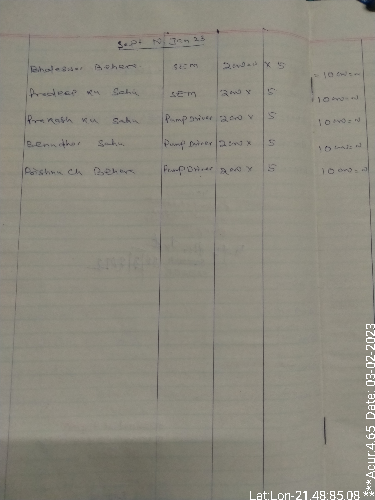 Sept N Jan 23
Bhaleswar Behera SEM 2000 × 5 = 10000=00
Pradeep Ku Sahu SEM 2000 × 5 10000=00
Prakash Ku Sahu Pump Driver 2000 × 5 10000=00
Sahu Pump Driver 2000 × 5 10000=00
Krishna Ch Behera Pump Driver 2000 × 5 10000=00
Lat:Lon-21.48:85.08
***Acur:4.65 Date: 03-02-2023